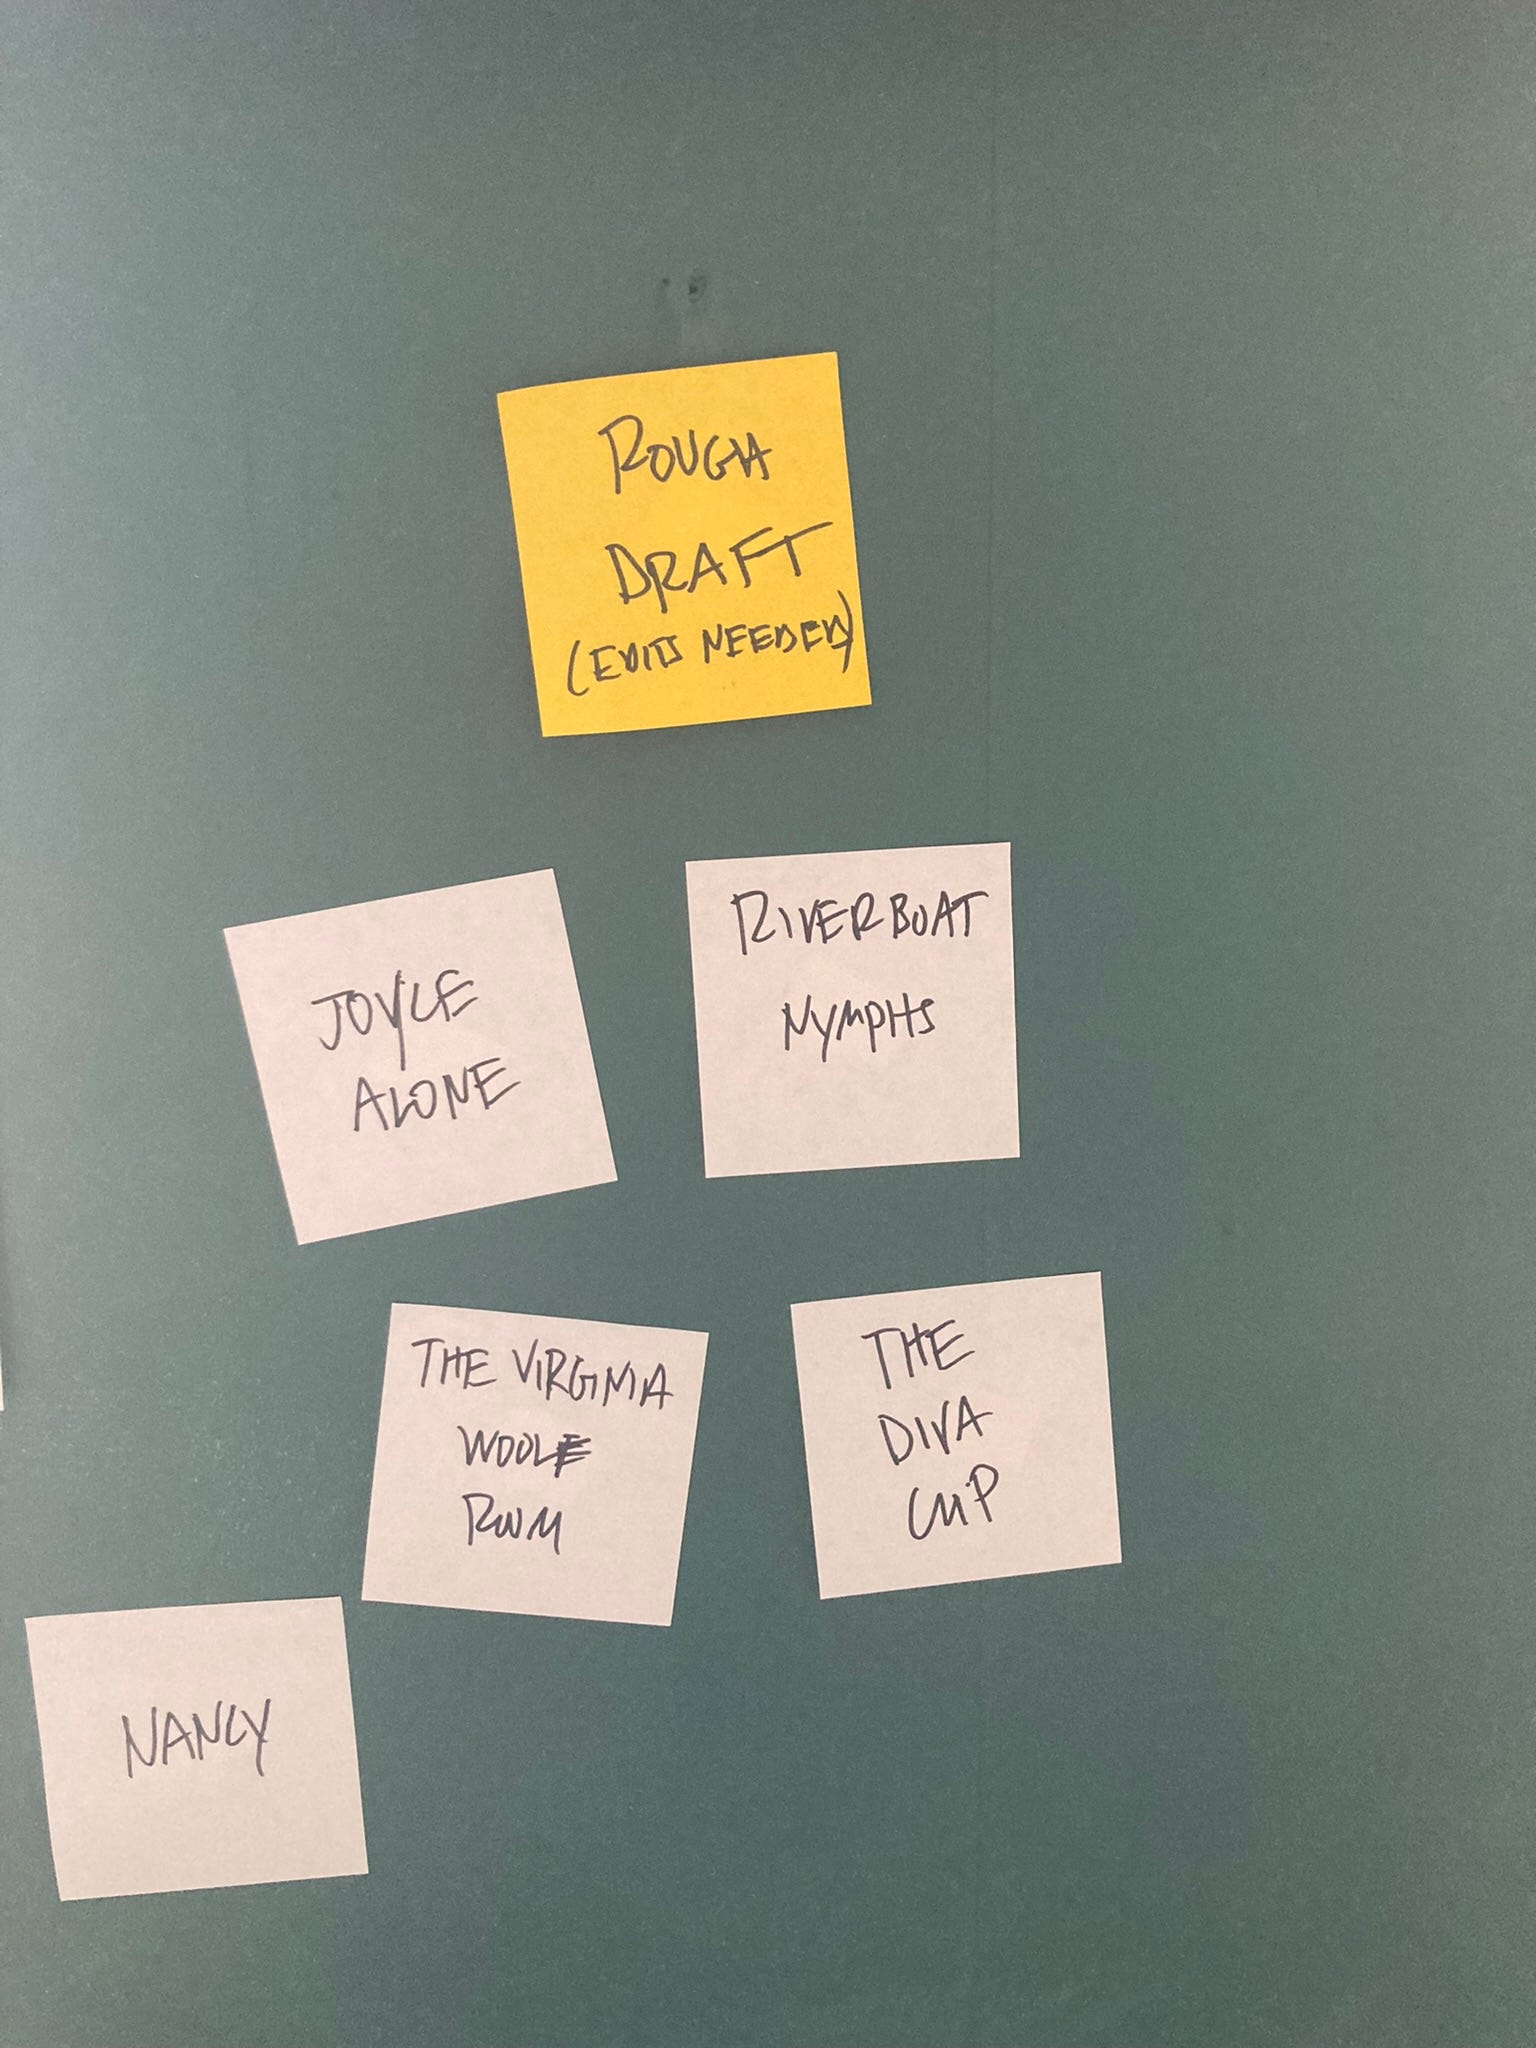 ROUGH
DRAFT
(EDITS NEEDED)
JOYCE
ALONE
RIVERBOAT
NYMPHS
THE VIRGINIA
WOOLF
ROOM
THE
DIVA
CUP
NANCY